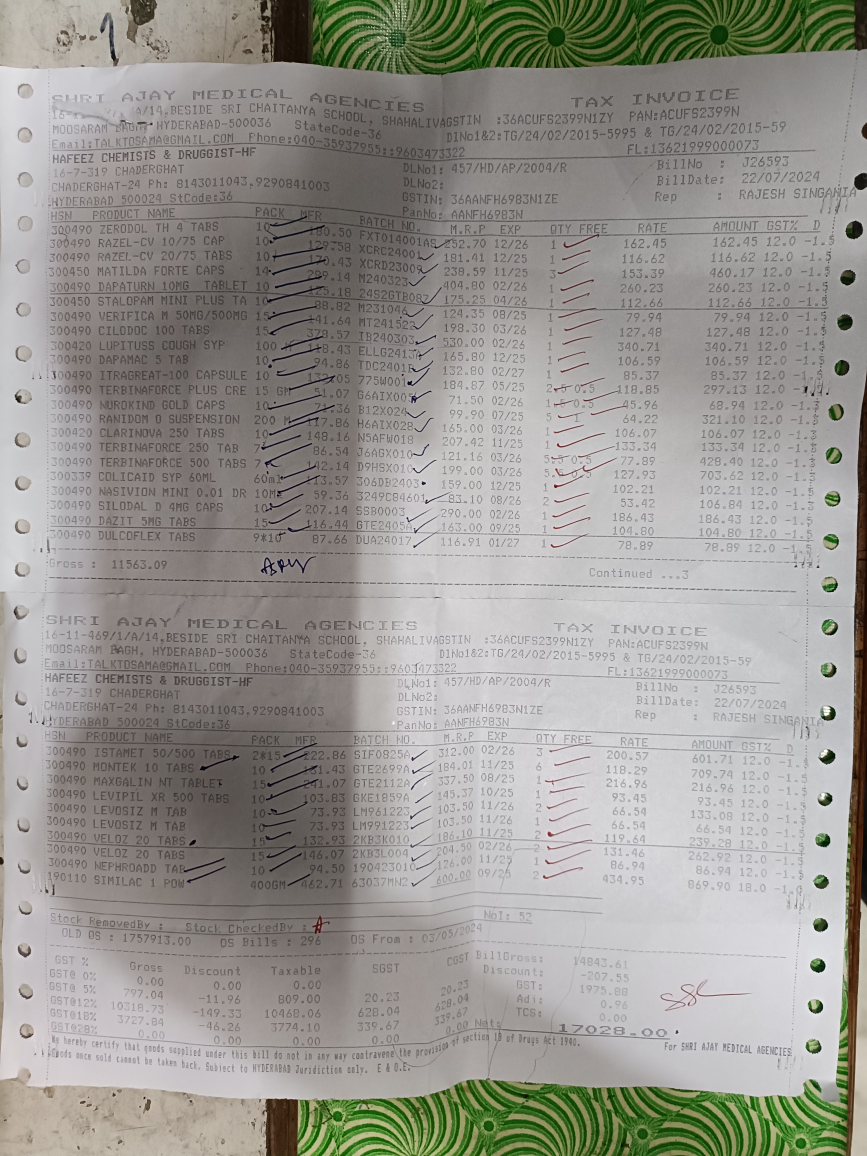 1
SHRI AJAY MEDICAL AGENCIES TAX INVOICE
A/14,BESIDE SRI CHAITANYA SCHOOL, SHAHALIVAGSTIN :36ACUFS2399N1ZY PAN:ACUFS2399N
MOOSARAM HYDERABAD-500036 StateCode-36 DlNo1&2:TG/24/02/2015-5995 & TG/24/02/2015-59
Email:TALKTOSAMA@GMAIL.COM Phone:040-35937955::9603473322 FL:13621999000073
HAFEEZ CHEMISTS & DRUGGIST-HF DLNo1: 457/HD/AP/2004/R BillNo : J26593
16-7-319 CHADERGHAT DLNo2: BillDate: 22/07/2024
CHADERGHAT-24 Ph: 8143011043,9290841003 GSTIN: 36AANFH6983N1ZE Rep : RAJESH SINGANIA
HYDERABAD 500024 StCode:36 PanNo: AANFH6983N
HSN PRODUCT NAME PACK MFR BATCH NO. M.R.P EXP QTY FREE RATE AMOUNT GST% D
300490 ZERODOL TH 4 TABS 10 180.50 FXT014001AS 252.70 12/26 1 162.45 162.45 12.0 -1.5
300490 RAZEL-CV 10/75 CAP 10 129.58 XCRC24001 181.41 12/25 1 116.62 116.62 12.0 -1.5
300490 RAZEL-CV 20/75 TABS 10 170.43 XCRD23009 238.59 11/25 3 153.39 460.17 12.0 -1.5
300450 MATILDA FORTE CAPS 14 289.14 M240323 404.80 02/26 1 260.23 260.23 12.0 -1.5
300490 DAPATURN 10MG TABLET 10 125.18 24S2GTB082 175.25 04/26 1 112.66 112.66 12.0 -1.5
300450 STALOPAM MINI PLUS TA 10 88.82 M231046 124.35 08/25 1 79.94 79.94 12.0 -1.5
300490 VERIFICA M 50MG/500MG 15 141.64 MT241522 198.30 03/26 1 127.48 127.48 12.0 -1.5
300490 CILODOC 100 TABS 15 378.57 IB240303 530.00 02/26 1 340.71 340.71 12.0 -1.5
300420 LUPITUSS COUGH SYP 100 M 118.43 ELLG2413 165.80 12/25 1 106.59 106.59 12.0 -1.5
300490 DAPAMAC 5 TAB 10 94.86 TDC2401 132.80 02/27 1 85.37 85.37 12.0 -1.5
300490 ITRAGREAT-100 CAPSULE 10 775W001 184.87 05/25 2.5 0.5 118.85 297.13 12.0 -1.5
300490 TERBINAFORCE PLUS CRE 15 GM 51.07 G6AIX005 71.50 02/26 1.5 0.5 45.96 68.94 12.0 -1.3
300490 NUROKIND GOLD CAPS 10 71.36 B12X024 99.90 07/25 5 1 64.22 321.10 12.0 -1.5
300490 RANIDOM O SUSPENSION 200 M 117.86 H6AIX028 165.00 03/26 1 106.07 106.07 12.0 -1.3
300420 CLARINOVA 250 TABS 10 148.16 N5AFW018 207.42 11/25 1 133.34 133.34 12.0 -1.5
300490 TERBINAFORCE 250 TAB 7 86.54 J6AGX010 121.16 03/26 5.5 0.5 77.89 428.40 12.0 -1.3
300490 TERBINAFORCE 500 TABS 7 142.14 D9HSX010 199.00 03/26 5.5 0.5 127.93 703.62 12.0 -1.5
300339 COLICAID SYP 60ML 60ml 113.57 306DB2403 159.00 12/25 1 102.21 102.21 12.0 -1.5
300490 NASIVION MINI 0.01 DR 10M 59.36 3249C84601 83.10 08/26 2 53.42 106.84 12.0 -1.5
300490 SILODAL D 4MG CAPS 10 207.14 SSB0003 290.00 02/26 1 186.43 186.43 12.0 -1.5
300490 DAZIT 5MG TABS 15 116.44 GTE2405A 163.00 09/25 1 104.80 104.80 12.0 -1.5
300490 DULCOFLEX TABS 9*10 87.66 DUA24017 116.91 01/27 1 78.89 78.89 12.0 -1.5
Gross : 11563.09 Continued ...3
SHRI AJAY MEDICAL AGENCIES TAX INVOICE
16-11-469/1/A/14,BESIDE SRI CHAITANYA SCHOOL, SHAHALIVAGSTIN :36ACUFS2399N1ZY PAN:ACUFS2399N
MOOSARAM BAGH, HYDERABAD-500036 StateCode-36 DlNo1&2:TG/24/02/2015-5995 & TG/24/02/2015-59
Email:TALKTOSAMA@GMAIL.COM Phone:040-35937955::9603473322 FL:13621999000073
HAFEEZ CHEMISTS & DRUGGIST-HF DLNo1: 457/HD/AP/2004/R BillNo : J26593
16-7-319 CHADERGHAT DLNo2: BillDate: 22/07/2024
CHADERGHAT-24 Ph: 8143011043,9290841003 GSTIN: 36AANFH6983N1ZE Rep : RAJESH SINGANIA
HYDERABAD 500024 StCode:36 PanNo: AANFH6983N
HSN PRODUCT NAME PACK MFR BATCH NO. M.R.P EXP QTY FREE RATE AMOUNT GST% D
300490 ISTAMET 50/500 TABS 2*15 222.86 SIF0825A 312.00 02/26 3 200.57 601.71 12.0 -1.5
300490 MONTEK 10 TABS 10 131.43 GTE2699A 184.01 11/25 6 118.29 709.74 12.0 -1.5
300490 MAXGALIN NT TABLET 15 241.07 GTE2112A 337.50 08/25 1 216.96 216.96 12.0 -1.5
300490 LEVIPIL XR 500 TABS 10 103.83 GKE1859A 145.37 10/25 1 93.45 93.45 12.0 -1.5
300490 LEVOSIZ M TAB 10 73.93 LM961223 103.50 11/26 2 66.54 133.08 12.0 -1.5
300490 LEVOSIZ M TAB 10 73.93 LM991223 103.50 11/26 1 66.54 66.54 12.0 -1.5
300490 VELOZ 20 TABS 15 132.93 2KB3K010 186.10 11/25 2 119.64 239.28 12.0 -1.5
300490 VELOZ 20 TABS 15 146.07 2KB3L004 204.50 02/26 2 131.46 262.92 12.0 -1.5
300490 NEPHROADD TAB 10 94.50 190423010 126.00 11/25 1 86.94 86.94 12.0 -1.5
190110 SIMILAC 1 POW 400GM 462.71 63037MN2 600.00 09/25 2 434.95 869.90 18.0 -1.5
Stock RemovedBy : Stock CheckedBy : NoI: 52
OLD OS : 1757913.00 OS Bills : 296 OS From : 03/05/2024
GST % Gross Discount Taxable SGST CGST BillGross: 14843.61
GST@ 0% 0.00 0.00 0.00 Discount: -207.55
GST@ 5% 797.04 -11.96 809.00 20.23 20.23 GST: 1975.88
GST@12% 10318.73 -149.33 10468.06 628.04 628.04 Adj: 0.96
GST@18% 3727.84 -46.26 3774.10 339.67 339.67 TCS: 0.00
GST@28% 0.00 0.00 0.00 0.00 0.00 Net: 17028.00
We hereby certify that goods supplied under this bill do not in any way contravene the provision of section 18 of Drugs Act 1940.
Goods once sold cannot be taken back. Subject to HYDERABAD Juridiction only. E & O.E. For SHRI AJAY MEDICAL AGENCIES